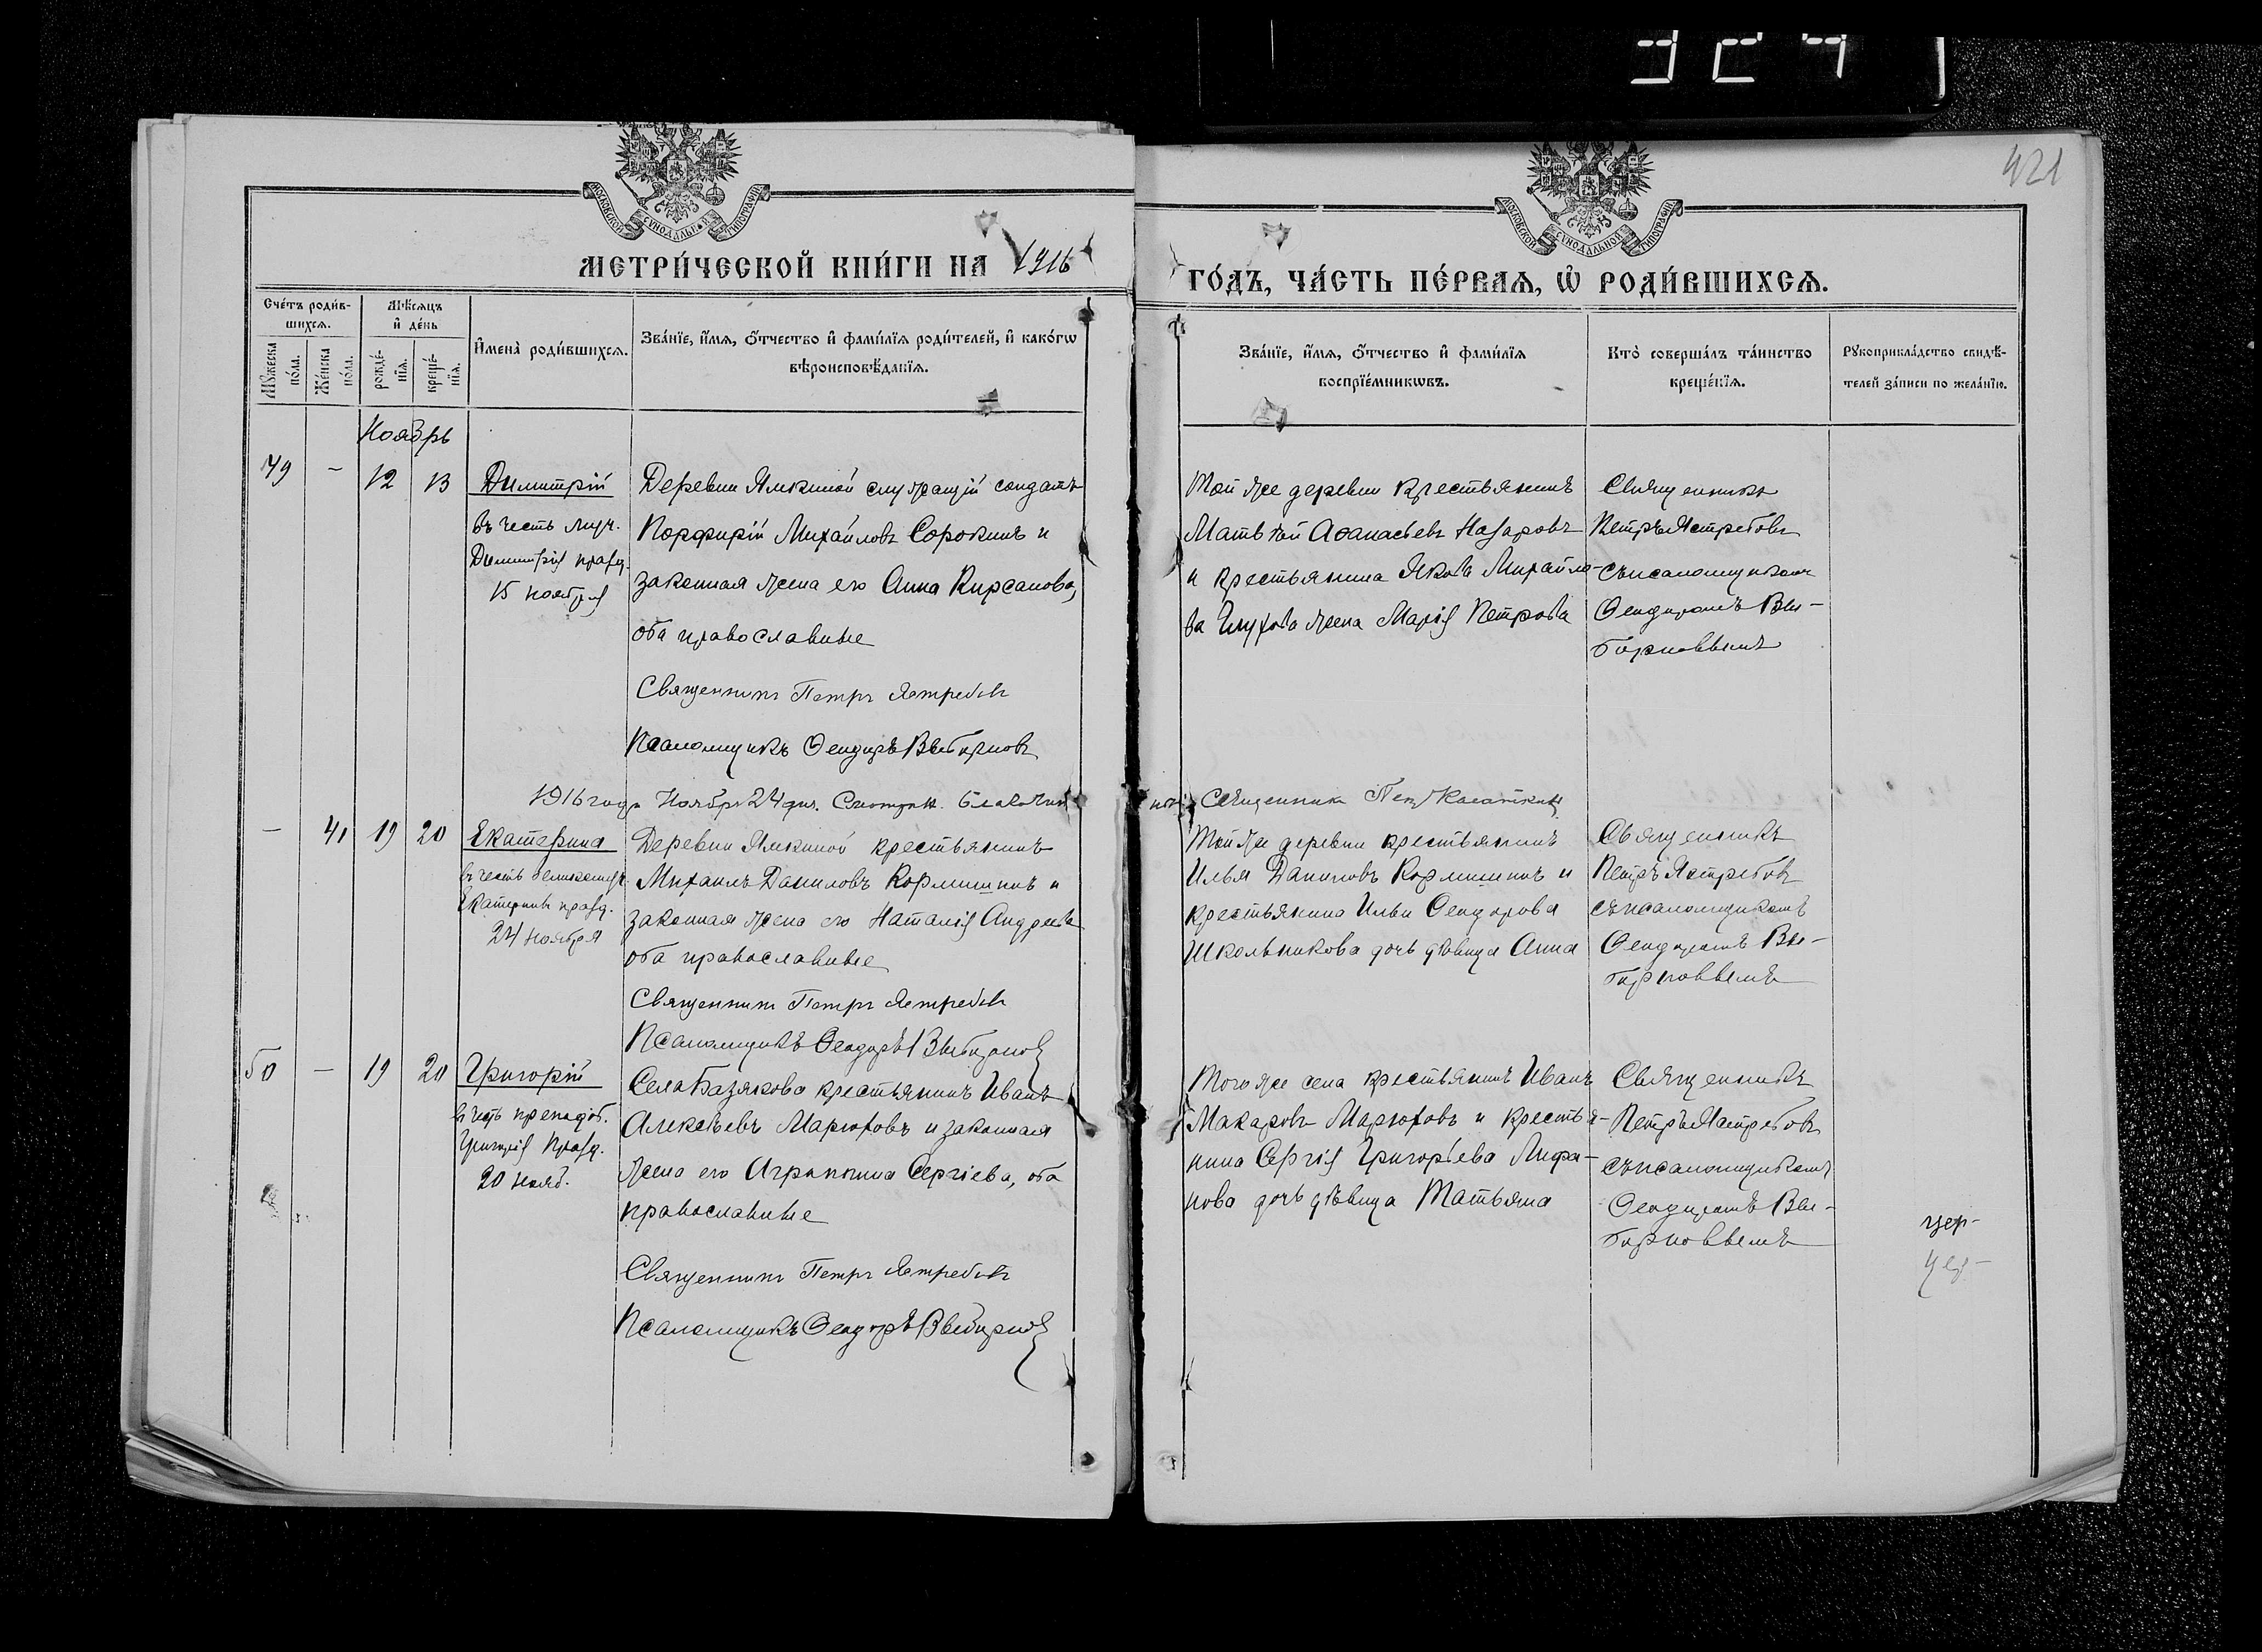 324
421
МОСКОВСКОЙ СѴНОДАЛЬНОЙ ТИПОГРАФІИ
МОСКОВСКОЙ СѴНОДАЛЬНОЙ ТИПОГРАФІИ
МЕТРИ́ЧЕСКОЙ КНИ́ГИ НА 1916
ГО́ДЪ, ЧА́СТЬ ПЕ́РВАЯ, Ѽ РОДИ́ВШИХСЯ.
Сче́тъ роди́в-
шихся.
Мѣ́сяцъ
и҆ де́нь
Мꙋ́жеска
по́ла.
Же́нска
по́ла.
рожде́-
нїя.
креще́-
нїя.
И҆мена̀ роди́вшихся.
Зва́нїе, и҆́мя, ѻ҆́тчество и҆ фами́лїя роди́телей, и҆ како́гѡ
вѣроисповѣ́данїя.
Зва́нїе, и҆́мя, ѻ҆́тчество и҆ фами́лїя
воспрїе́мникѡвъ.
Кто̀ соверша́лъ та́инство
креще́нїя.
Рꙋкоприкла́дство свидѣ́-
телей за́писи по жела́нїю.
Ноябрь
49 - 12 13 Димитрій
въ честь муч.
Димитрія празд.
15 ноября
Деревни Ямкиной служащій солдатъ
Порфирій Михайловъ Сорокинъ и
законная жена его Анна Кирсанова,
оба православные
Священникъ Петръ Ястребовъ
Псаломщикъ Ѳеодоръ Выборновъ
Той же деревни крестьянинъ
Матвѣй Аѳанасьевъ Назаровъ
и крестьянина Якова Михайло-
ва Глухова жена Марія Петрова
Священникъ
Петръ Ястребовъ
съ псаломщикомъ
Ѳеодоромъ Вы-
борновымъ
1916 года Ноября 24 дня. Священникъ
- 41 19 20 Екатерина
въ честь великомуч.
Екатерины празд.
24 ноября
Деревни Ямкиной крестьянинъ
Михаилъ Даниловъ Кормишинъ и
законная жена его Наталія Андреева
оба православные
Священникъ Петръ Ястребовъ
Псаломщикъ Ѳеодоръ Выборновъ
Той же деревни крестьянинъ
Илья Даниловъ Кормишинъ и
крестьянина Ильи Ѳеодорова
Школьникова дочь дѣвица Анна
Священникъ
Петръ Ястребовъ
съ псаломщикомъ
Ѳеодоромъ Вы-
борновымъ
50 - 19 20 Григорій
въ честь преподоб.
Григорія празд.
20 нояб.
Села Базякова крестьянинъ Иванъ
Алексѣевъ Марюховъ и законная
жена его Агриппина Сергіева, оба
православные
Священникъ Петръ Ястребовъ
Псаломщикъ Ѳеодоръ Выборновъ
Того же села крестьянинъ Иванъ
Макаровъ Марюховъ и крестья-
нина Сергія Григорьева Лифа-
нова дочь дѣвица Татьяна
Священникъ
Петръ Ястребовъ
съ псаломщикомъ
Ѳеодоромъ Вы-
борновымъ
цер-
цер-